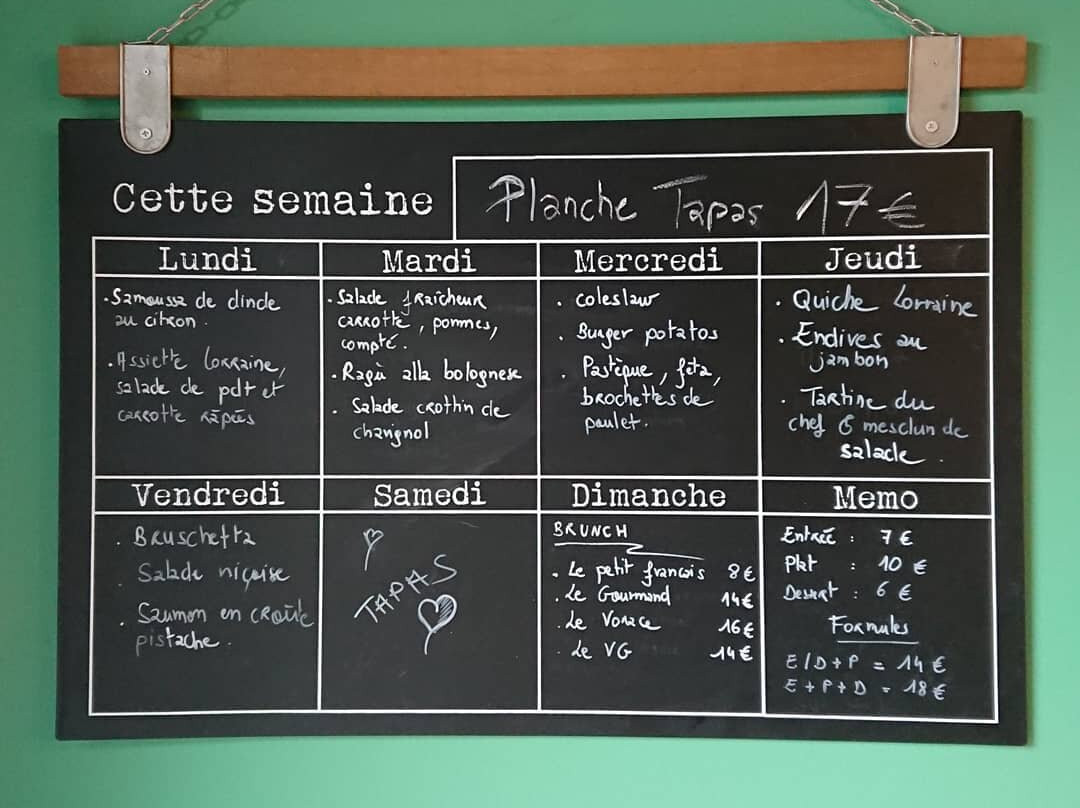 Cette semaine
Planche Tapas 17€
Lundi
· Samoussa de dinde
au citron.
· Assiette lorraine,
salade de pdt et
carrotte râpées
Mardi
· Salade fraîcheur
carrotte, pommes,
compté.
· Ragù alla bolognese
· Salade crothin de
chavignol
Mercredi
· coleslaw
· Burger potatos
· Pastèque, féta,
brochettes de
poulet.
Jeudi
· Quiche Lorraine
· Endives au
jambon
· Tartine du
chef & mesclun de
salade.
Vendredi
· Bruschetta
· Salade niçoise
· Saumon en croûte
pistache.
Samedi
TAPAS
Dimanche
BRUNCH
· Le petit francais 8€
· Le Gourmand 14€
· Le Vorace 16€
· Le VG 14€
Memo
Entréé : 7€
Plat : 10€
Dessert : 6€
Formules
E/D+P = 14€
E+P+D = 18€